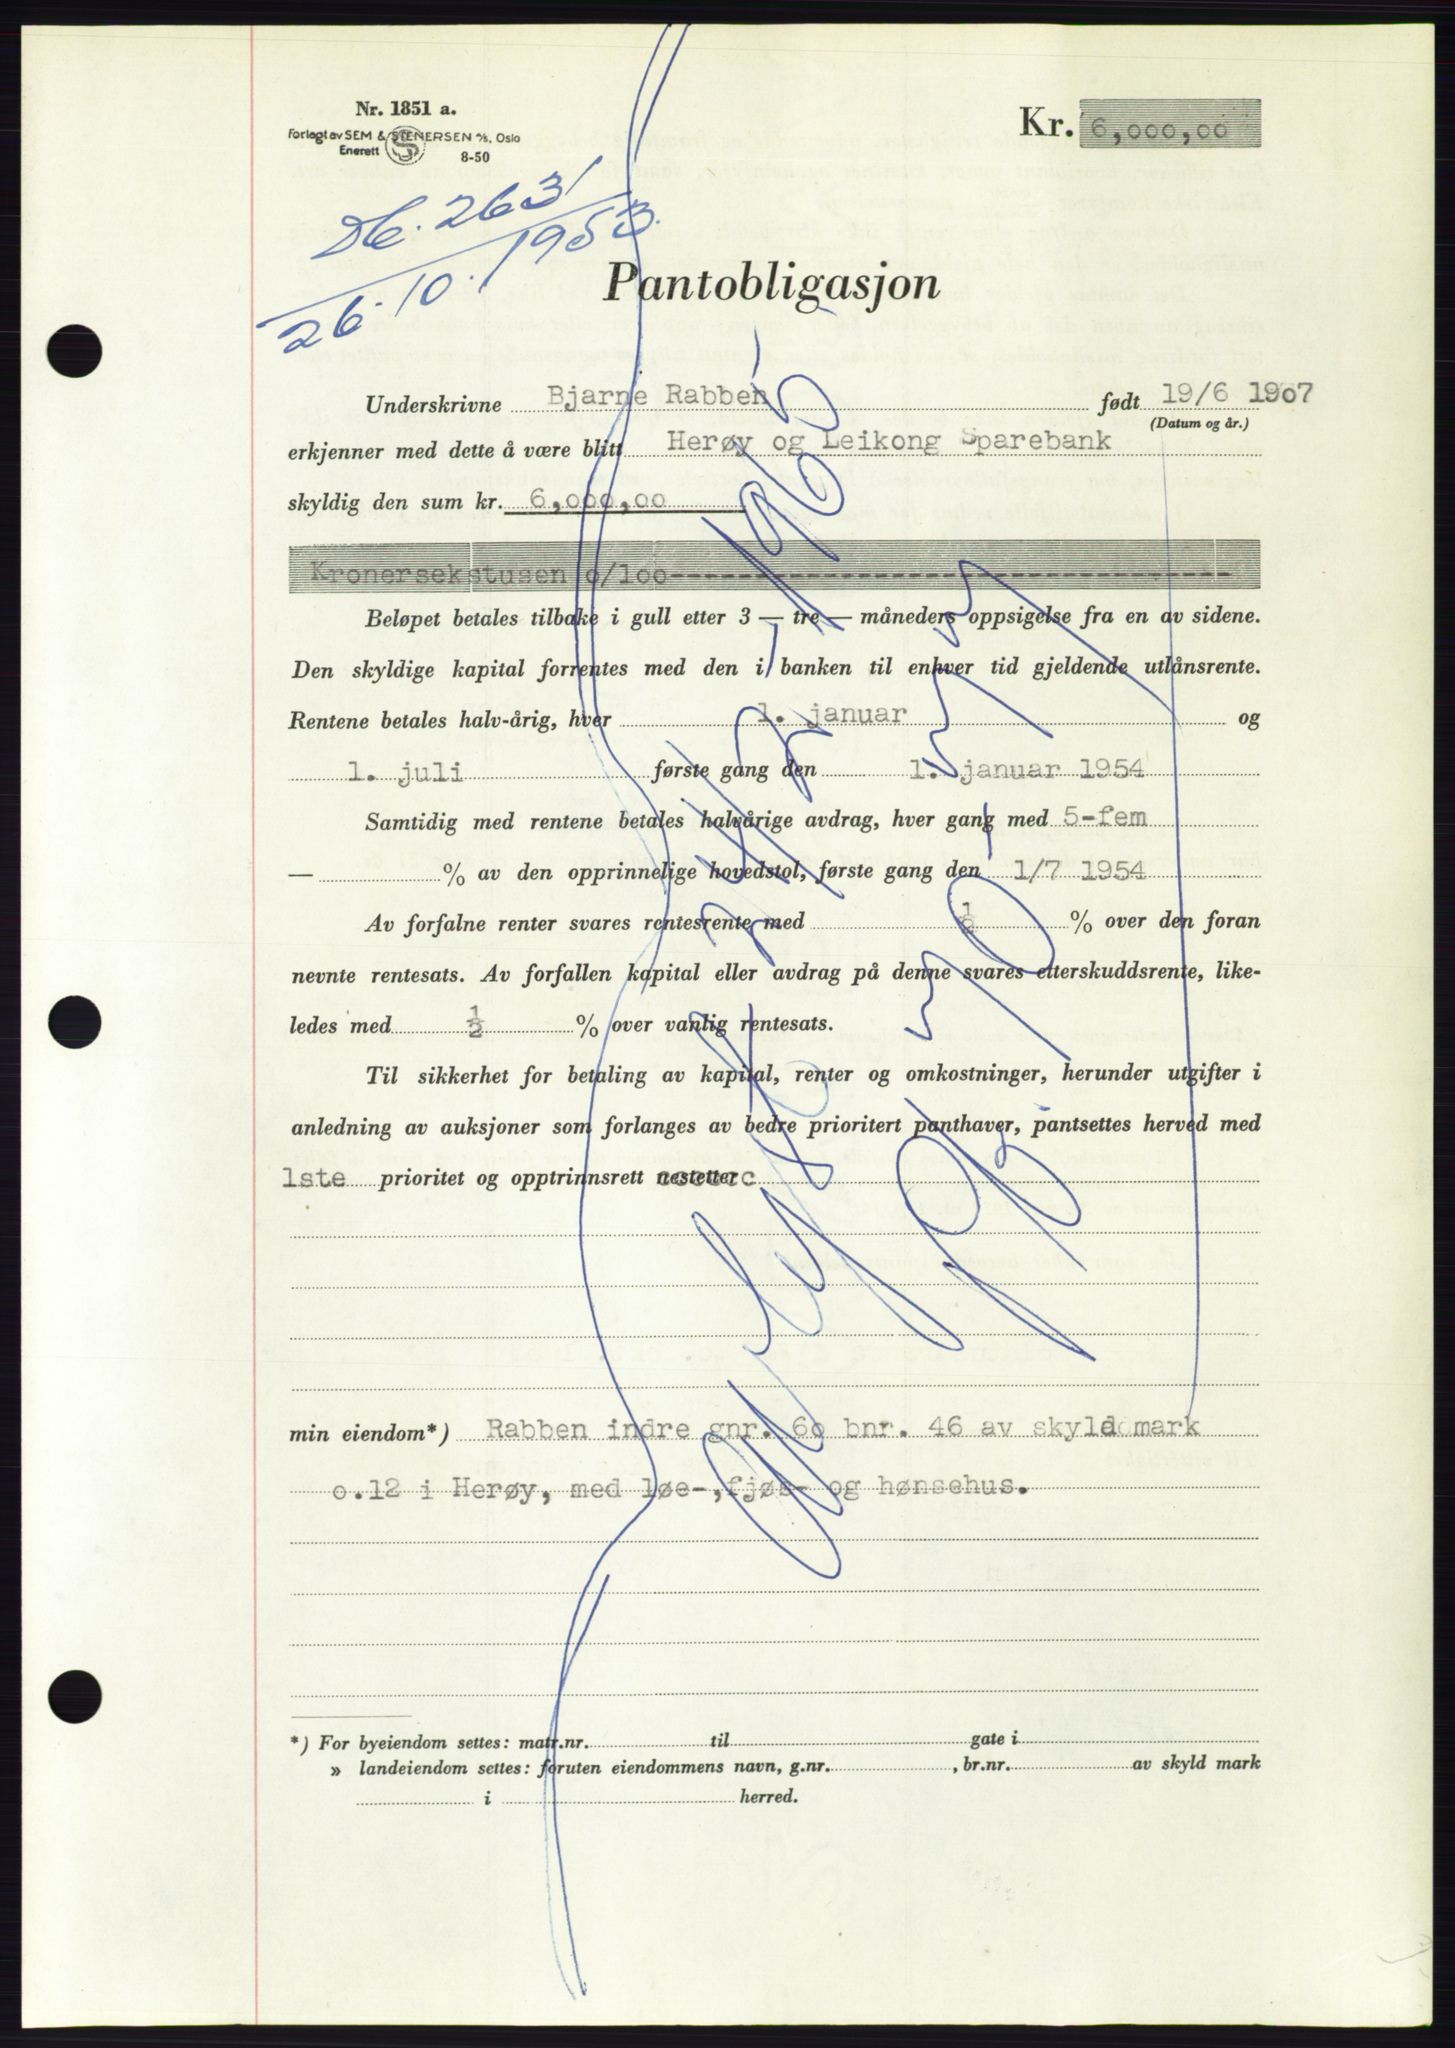 Nr. 1851 a.
Forlagt av SEM & STENERSEN A/S, Oslo
Enerett
8-50
Kr. 6,000,00
Db. 263/
26.10.1953.
Pantobligasjon
Underskrivne Bjarne Rabben født 19/6 1907
(Datum og år.)
erkjenner med dette å være blitt Herøy og Leikong Sparebank
skyldig den sum kr. 6,000,00
Kronersekstusen o/loo
Beløpet betales tilbake i gull etter 3 — tre — måneders oppsigelse fra en av sidene.
Den skyldige kapital forrentes med den i banken til enhver tid gjeldende utlånsrente.
Rentene betales halv-årig, hver 1. januar og
1. juli første gang den 1. januar 1954
Samtidig med rentene betales halvårige avdrag, hver gang med 5-fem
— % av den opprinnelige hovedstol, første gang den 1/7 1954
Av forfalne renter svares rentesrente med % over den foran
nevnte rentesats. Av forfallen kapital eller avdrag på denne svares etterskuddsrente, like-
ledes med ½ % over vanlig rentesats.
Til sikkerhet for betaling av kapital, renter og omkostninger, herunder utgifter i
anledning av auksjoner som forlanges av bedre prioritert panthaver, pantsettes herved med
1ste prioritet og opptrinnsrett nestetter
Avlyst 1965
min eiendom*) Rabben indre gnr. 6o bnr. 46 av skyld mark
o.12 i Herøy, med løe-,fjøs- og hønsehus.
*) For byeiendom settes: matr.nr. til gate i
» landeiendom settes: foruten eiendommens navn, g.nr. , br.nr. av skyld mark
i herred.